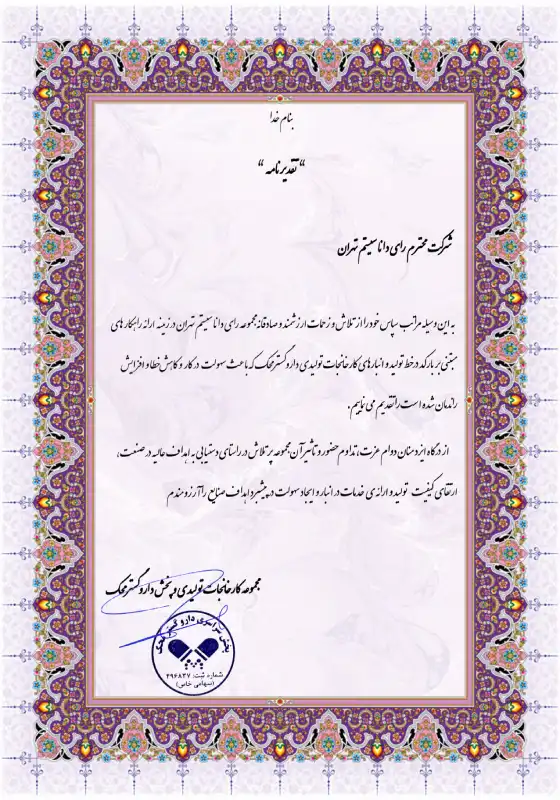 بنام خدا
“ تقدیرنامه “
شرکت محترم رای دانا سیستم تهران
به این وسیله مراتب سپاس خود را از تلاش و زحمات ارزشمند و صادقانه مجموعه رای دانا سیستم تهران در زمینه ارائه راهکارهای
مبتنی بر بارکد در خط تولید و انبارهای کارخانجات تولیدی داروگستر محک که باعث سهولت در کار و کاهش خطا و افزایش
راندمان شده است را تقدیم می نماییم.
از درگاه ایزد منان دوام عزت، تداوم حضور و تاثیر آن مجموعه پرتلاش در راستای دستیابی به اهداف عالیه در صنعت،
ارتقای کیفیت تولید و ارائه ی خدمات در انبار و ایجاد سهولت در پیشبرد اهداف صنایع را آرزومندم
مجموعه کارخانجات تولیدی و پخش داروگستر محک
پخش سراسری داروگستر محک
شماره ثبت: ۴۹۶۸۳۷
(سهامی خاص)